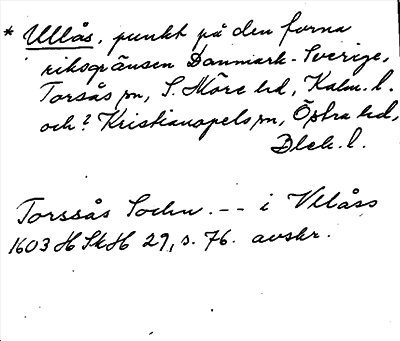 * Ullås, punkt på den forna
riksgränsen Danmark-Sverige,
Torsås sn, S. Möre hd, Kalm. l.
och? Kristianopels sn, Östra hd,
Blek. l.
Torssås Sochn. -- i Vllåss
1603 HSkH 29, s. 76. avskr.